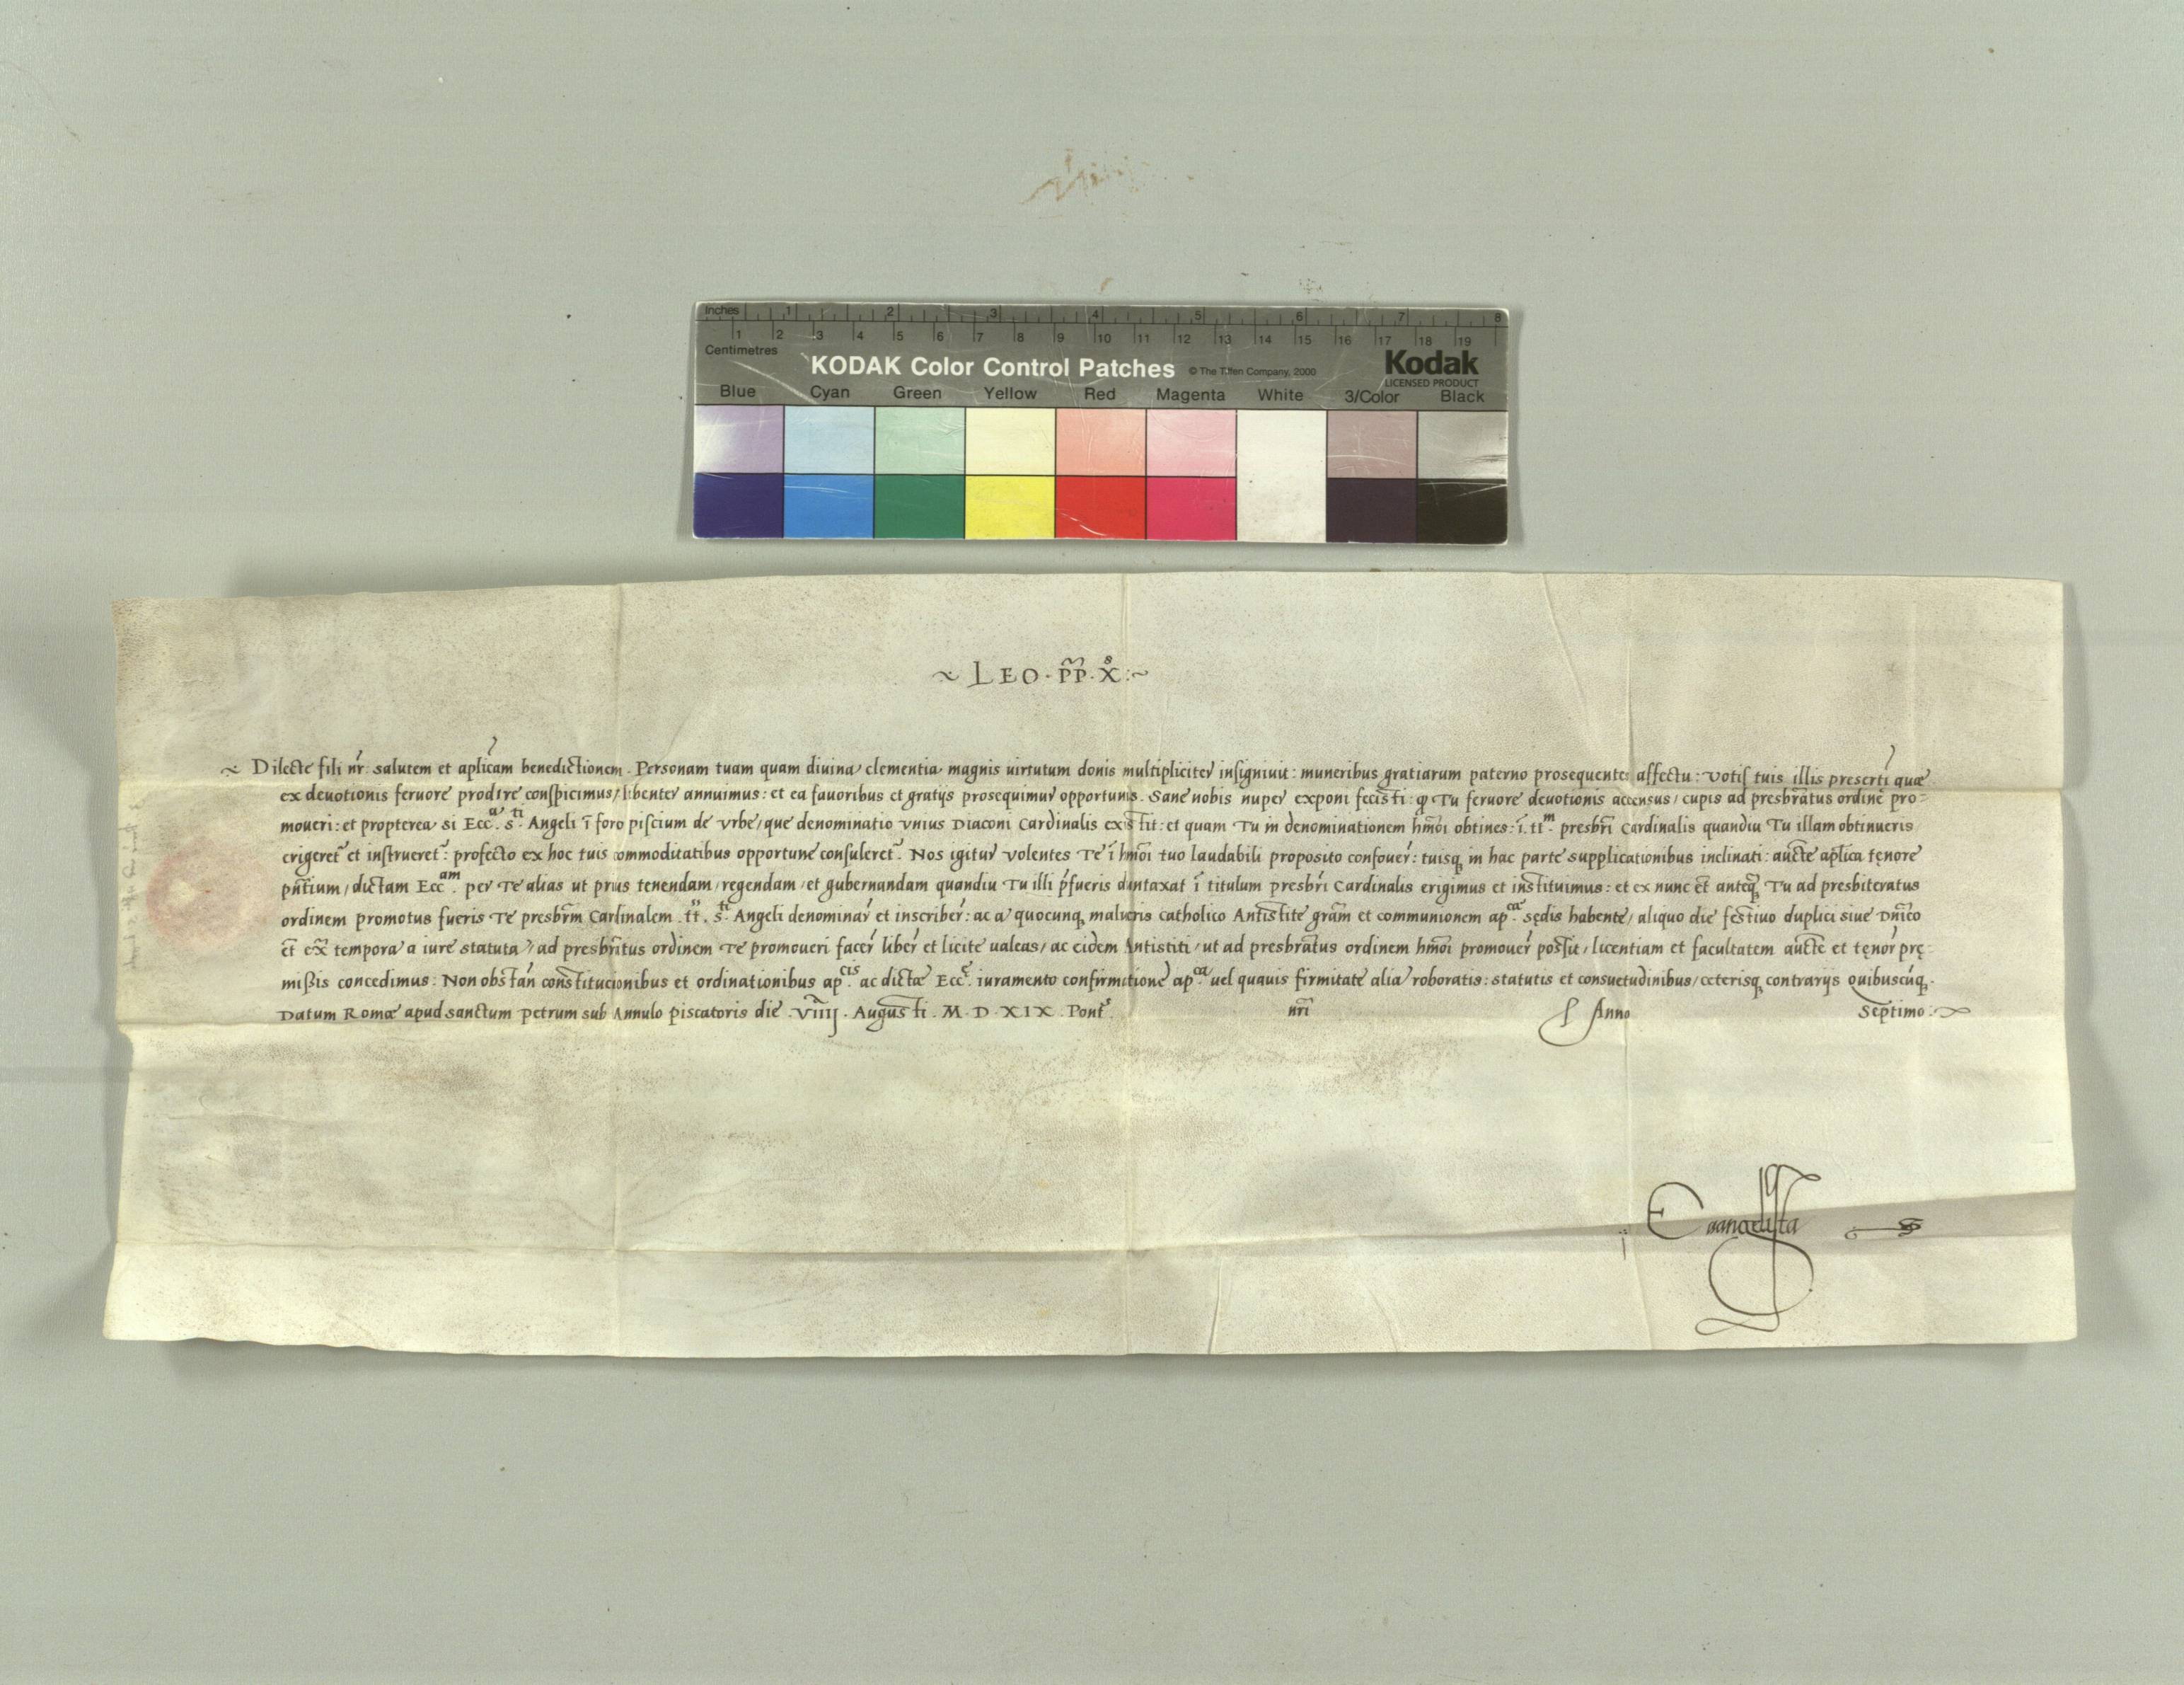 Inches 1 2 3 4 5 6 7 8
1 2 3 4 5 6 7 8 9 10 11 12 13 14 15 16 17 18 19
Centimetres
KODAK Color Control Patches © The Tiffen Company, 2000 Kodak
LICENSED PRODUCT
Blue Cyan Green Yellow Red Magenta White 3/Color Black
~ LEO · P̃P · X̊ :~
~ Dilecte fili nr̃: salutem et aplicam benedictionem. Personam tuam quam diuina clementia magnis uirtutum donis multipliciter insigniuit: muneribus gratiarum paterno prosequentes affectu: Votis tuis illis preserti quæ
ex deuotionis feruore prodire conspicimus/libenter annuimus: et ea fauoribus et gratijs prosequimur opportunis. Sane nobis nuper exponi fecisti: ꝙ Tu feruore deuotionis accensus/cupis ad presbr̃atus ordinẽ pro-
moueri: et propterea si Ecc.ᵃ S.ᵗⁱ Angeli ĩ foro piscium de Vrbe/que denominatio Vnius Diaconi Cardinalis existit: et quam Tu in denominationem hm̃oi obtines: ĩ tt.ᵐ presbr̃i Cardinalis quandiu Tu illam obtinueris
erigeret̃ et institueret̃: profecto ex hoc tuis commoditatibus opportune consuleret̃. Nos igitur Volentes Te ĩ hm̃oi tuo laudabili proposito confouer̃: tuisq̃ in hac parte supplicationibus inclinati: aucte aplica tenore
pñtium/dictam Ecc.ᵃᵐ per Te alias ut prius tenendam/regendam/et gubernandam quandiu Tu illi p̃fueris duntaxat ĩ titulum presbr̃i Cardinalis erigimus et instituimus: et ex nunc et̃ anteq̃ Tu ad presbiteratus
ordinem promotus fueris Te presbr̃m Cardinalem .tt̃. S.ᵗⁱ Angeli denominar̃ et inscriber̃: ac a quocunq̃ malueris Catholico Antistite gram̃ et communionem ap.ᶜᵃᵉ sędis habente/aliquo die festiuo duplici siue Dnĩco
et̃ ex̃ tempora a iure statuta/ad presbr̃atus ordinem Te promoueri facer̃ liber̃ et licite ualeas/ac eidem Antistiti/ut ad presbr̃atus ordinem hm̃oi promouer̃ possit/licentiam et facultatem aucte et tenor̃ prę-
missis concedimus: Non obstan̄ constitucionibus et ordinationibus ap.ᶜⁱˢ ac dictæ Ecc.ᵉ iuramento confirmatione ap.ᶜᵃ uel quauis firmitate alia roboratis: statutis et consuetudinibus/ceterisq̃ contrarijs quibuscũq̃.
Datum Romæ apud sanctum Petrum sub Annulo piscatoris die .Viiij. Augusti. M. D. XIX. Pont̃. nr̃i Anno Septimo:~
Euangelista